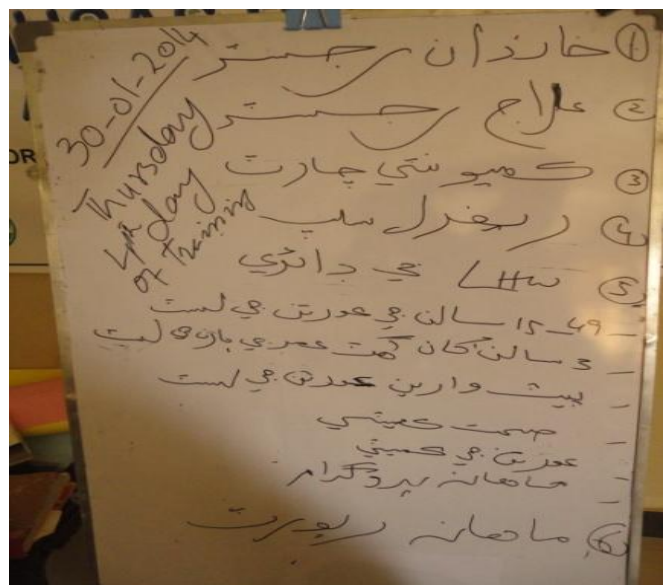 30-01-2014
Thursday
4th day
of Training
① خاندان رجسٽر
② علاج رجسٽر
③ ڪميونٽي چارٽ
④ ريفرل سلپ
⑤ LHW جي ڊائري
- 15-49 سالن جي عورتن جي لسٽ
- 3 سالن کان گهٽ عمر جي ٻارن جي لسٽ
- پيٽ وارين عورتن جي لسٽ
- صحت ڪميٽي
- عورتن جي ڪميٽي
- ماهانه پروگرام
⑥ ماهانه رپورٽ